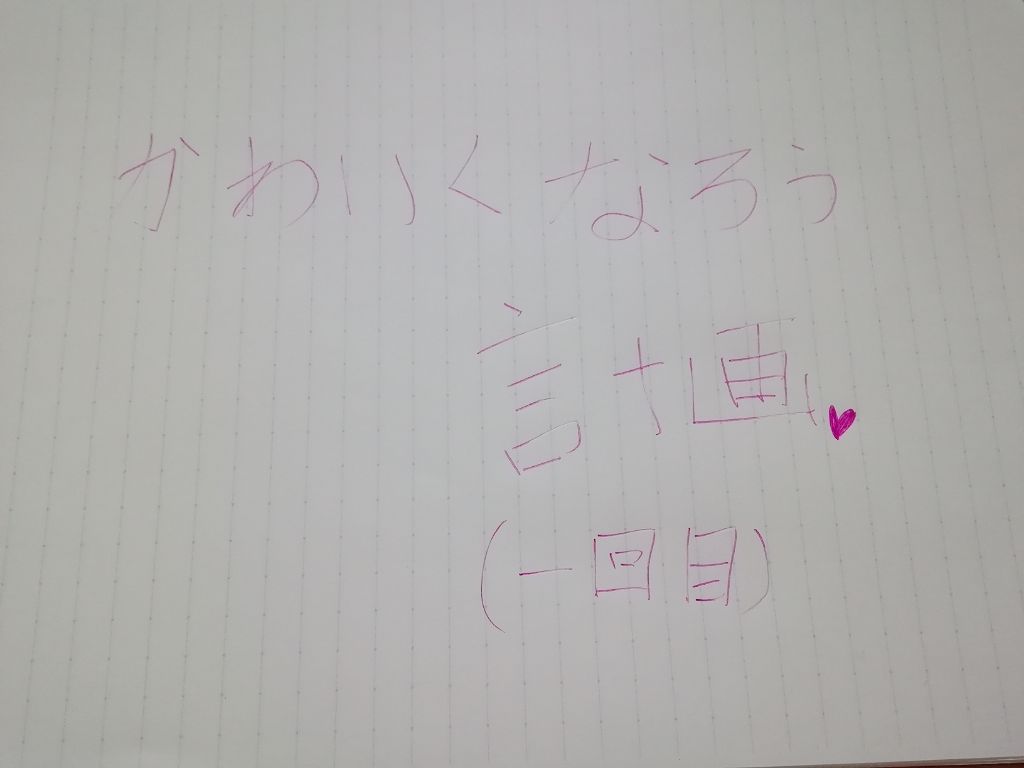 かわいくなろう
計画♥
(一回目)